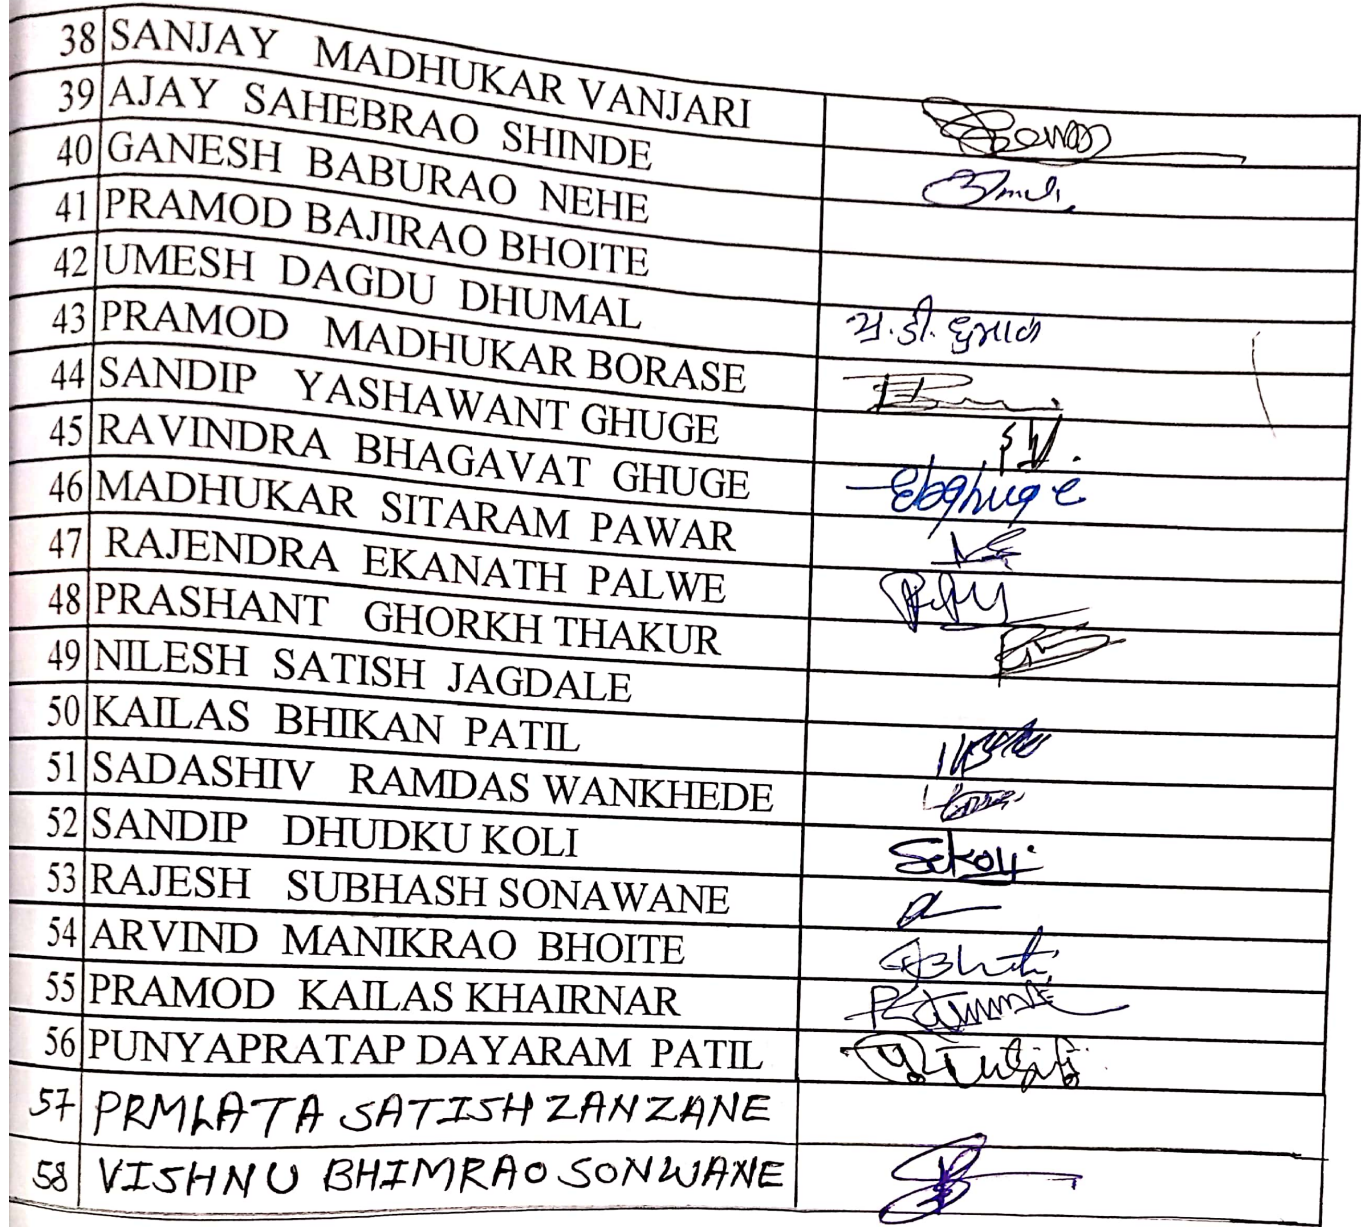 38 SANJAY MADHUKAR VANJARI
39 AJAY SAHEBRAO SHINDE
40 GANESH BABURAO NEHE
41 PRAMOD BAJIRAO BHOITE
42 UMESH DAGDU DHUMAL
43 PRAMOD MADHUKAR BORASE
44 SANDIP YASHAWANT GHUGE
45 RAVINDRA BHAGAVAT GHUGE
46 MADHUKAR SITARAM PAWAR
47 RAJENDRA EKANATH PALWE
48 PRASHANT GHORKH THAKUR
49 NILESH SATISH JAGDALE
50 KAILAS BHIKAN PATIL
51 SADASHIV RAMDAS WANKHEDE
52 SANDIP DHUDKU KOLI
53 RAJESH SUBHASH SONAWANE
54 ARVIND MANIKRAO BHOITE
55 PRAMOD KAILAS KHAIRNAR
56 PUNYAPRATAP DAYARAM PATIL
57 PRMLATA SATISH ZANZANE
58 VISHNU BHIMRAO SONWANE